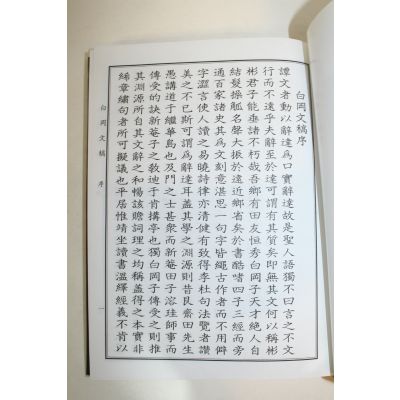 白岡文稿序
譚文者動以辭達爲口實辭達故是聖人語獨不曰言之不文
行而不遠乎夫辭至於達可謂有其質矣即無其文何以稱彬
彬君子能垂諸不朽哉吾鄉有田友恒秀白岡子天才絕人自
結髮操觚名聲大振於遠近鄉省矣於書酷嗜四子三經而旁
通百家諸史其爲文刻意湛思一句字皆繩古作者而不用僻
字澀言使人讀之易曉詩律亦清健有致得李杜句法覽者讚
美之不已斯可謂辭達耳蓋其學之淵源則昔艮齋田先生
愚講道于繼華島也及門之士甚衆而新菴田子溶珄師事而
傳受的訣新菴子之敎迪于肯搆亭也獨白岡子傳受之則推
其淵源所自其文辭之和暢該贍詞理之均稱蓋得之本實非
絺章繡句者所可擬議也平居惟靖坐讀書溫繹經義不肯以
白岡文稿 序
一